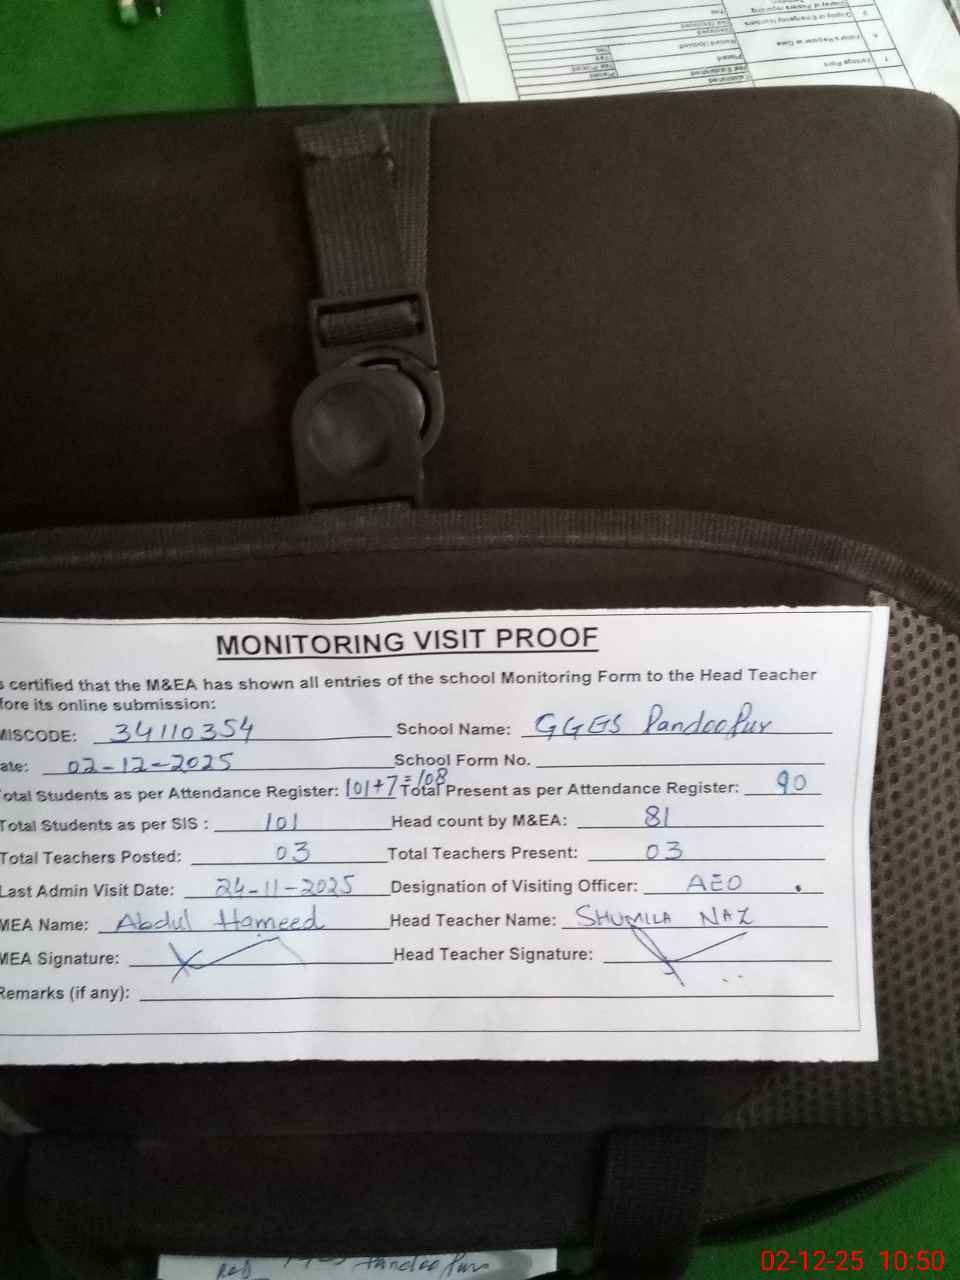 MONITORING VISIT PROOF
s certified that the M&EA has shown all entries of the school Monitoring Form to the Head Teacher
fore its online submission:
MISCODE: 34110354 School Name: GGES Pandoo Pur
ate: 02-12-2025 School Form No.
otal Students as per Attendance Register: 101+7=108 Total Present as per Attendance Register: 90
Total Students as per SIS : 101 Head count by M&EA: 81
Total Teachers Posted: 03 Total Teachers Present: 03
Last Admin Visit Date: 24-11-2025 Designation of Visiting Officer: AEO
MEA Name: Abdul Hameed Head Teacher Name: SHUMILA NAZ
MEA Signature: Head Teacher Signature:
Remarks (if any):
Pandoo Pur
02-12-25 10:50